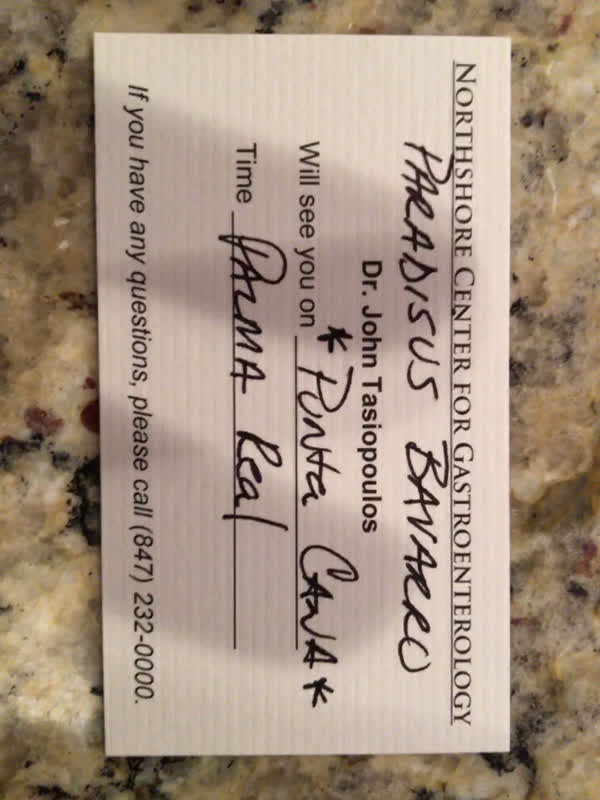 NORTHSHORE CENTER FOR GASTROENTEROLOGY
PARADISUS BAVARRO
Dr. John Tasiopoulos
Will see you on * Punta CANA *
Time PALMA Real
If you have any questions, please call (847) 232-0000.